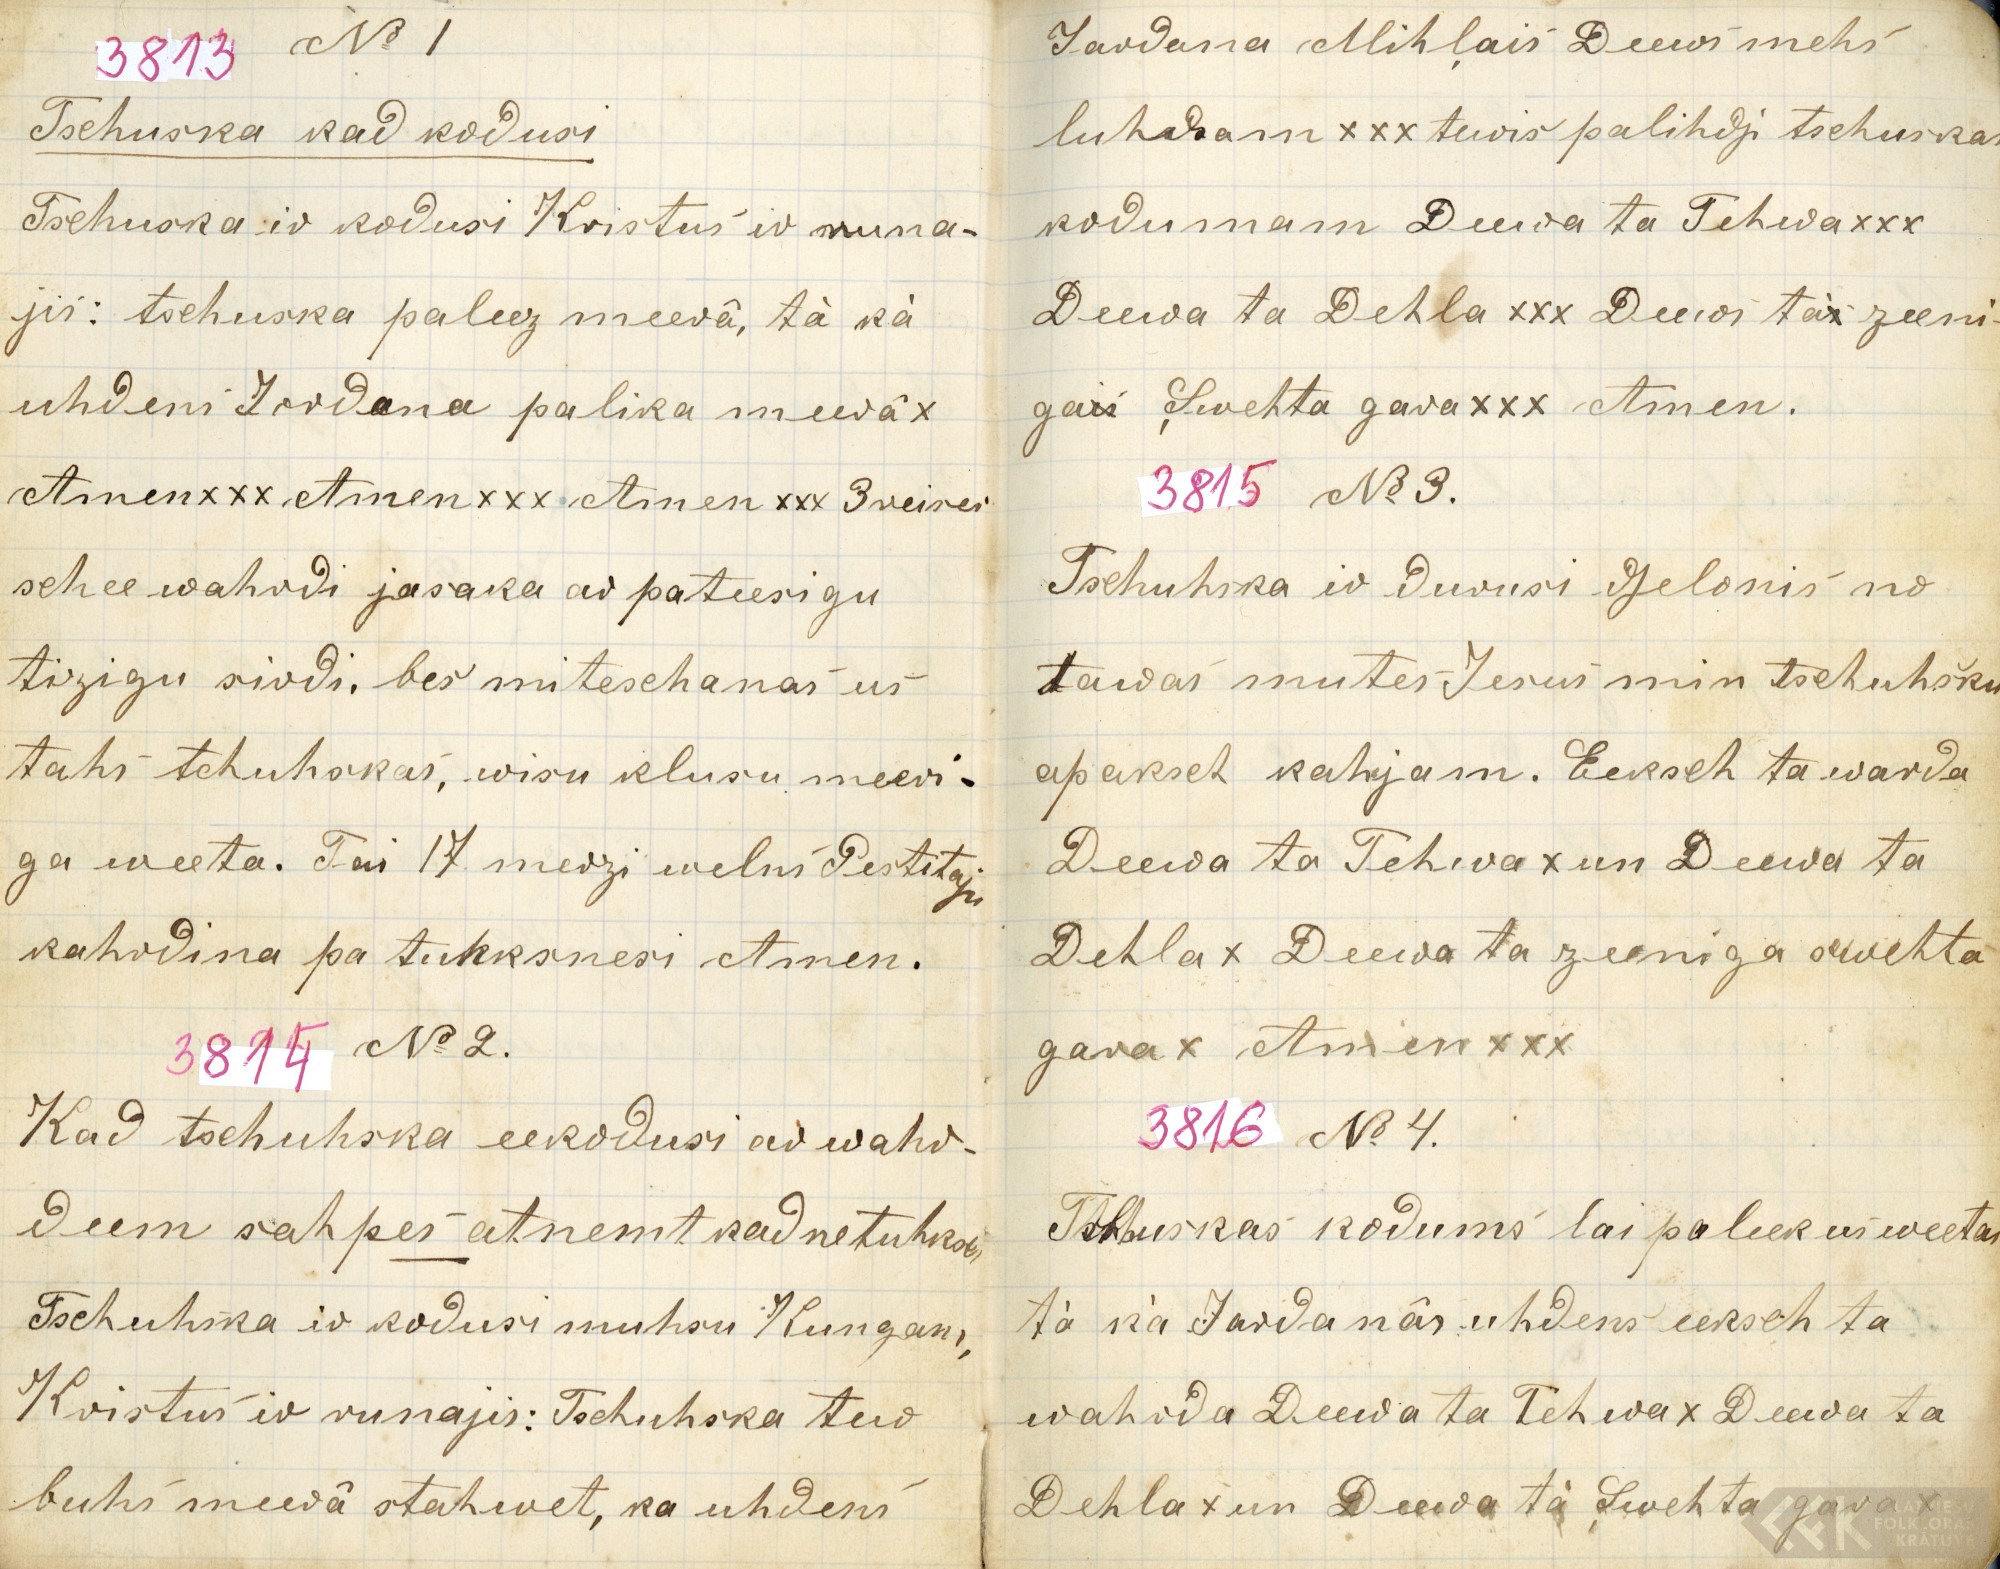 3813 № 1
Tschuska kad kodusi
Tschuska ir kodusi Kristus ir runa-
jis: tschuska paleez meerâ, tà kà
uhdens Jordana palika meerâ x
Amen xxx Amen xxx Amen xxx 3 reises
schee wahrdi jasaka ar pateesigu
tizigu sirdi. bes miteschanas us
tahs tchuhskas, wisu klusu meeri-
ga weeta. Tai 17 merzi welns Pestitaju
kahrdina pa tuhksnesi Amen.
3814 № 2.
Kad tschuhska eekodusi ar wahr-
deem sahpes atnemt kad netuhkst
Tschuhska ir kodusi muhsu Kungam,
Kristus ir runajis: Tschuhska tew
buhs meerâ stahwet, ka uhdens
Jardana Mihļais Deews mehs
luhdsam xxx tewis palihdzi tschuskas
kodumam Deewa ta Tehwa xxx
Deewa ta Dehla xxx Deews tàs zeeni-
gais Swehta gara xxx Amen.
3815 № 3.
Tschuhska ir durusi dzelonis no
tawas mutes Jesus min tschuhsku
apakset kahjam. Eeksch ta warda
Deewa ta Tehwa x un Deewa ta
Dehla x Deewa ta zeeniga swehta
gara x Amen xxx
3816 № 4.
Tschuskas kodums lai paleek us weetas
tà kà Jardanâs uhdens eeksch ta
wahrda Deewa ta Tehwa x Deewa ta
Dehla x un Deewa tà Swehta gara x
LATVIEŠU
FOLKLORAS
KRĀTUVE